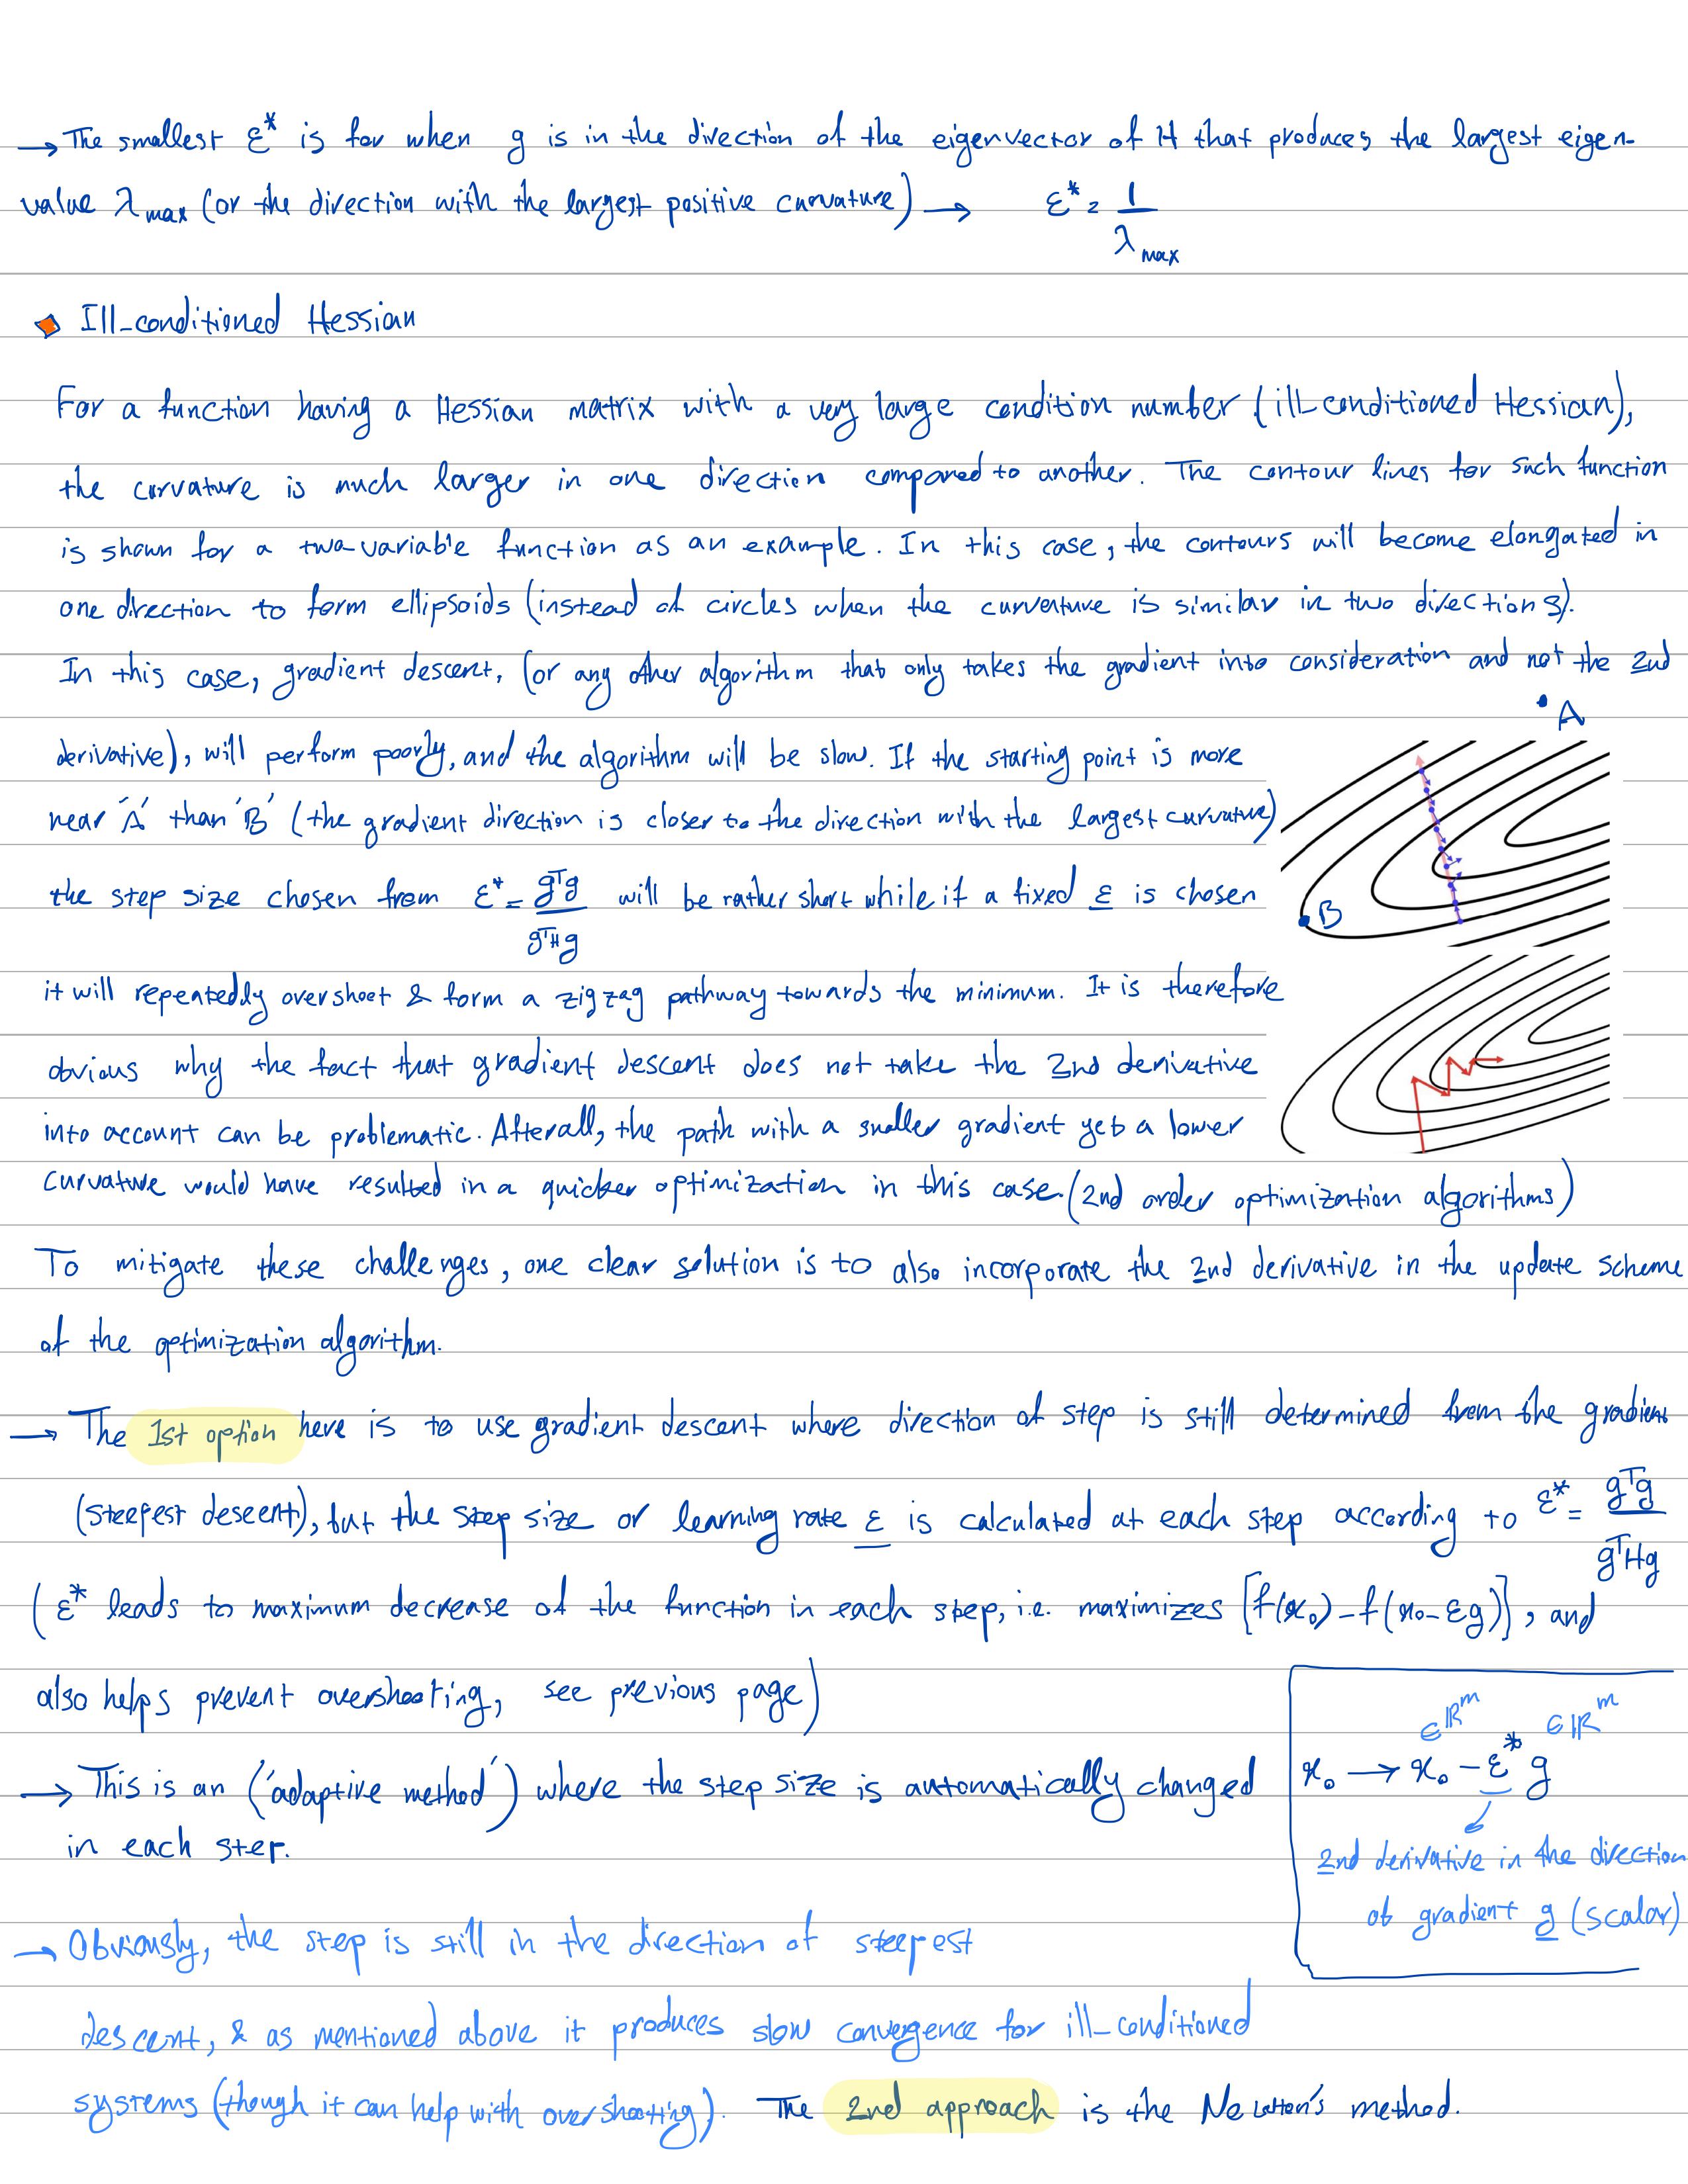 → The smallest ε* is for when g is in the direction of the eigenvector of H that produces the largest eigen-
value λmax (or the direction with the largest positive curvature) → ε* = 1/λmax
Ill-conditioned Hessian
For a function having a Hessian matrix with a very large condition number (ill-conditioned Hessian),
the curvature is much larger in one direction compared to another. The contour lines for such function
is shown for a two-variable function as an example. In this case, the contours will become elongated in
one direction to form ellipsoids (instead of circles when the curvature is similar in two directions).
In this case, gradient descent, (or any other algorithm that only takes the gradient into consideration and not the 2nd
A
derivative), will perform poorly, and the algorithm will be slow. If the starting point is more
near 'A' than 'B' (the gradient direction is closer to the direction with the largest curvature)
the step size chosen from ε* = gᵀg/gᵀHg will be rather short while if a fixed ε is chosen
B
it will repeatedly overshoot & form a zigzag pathway towards the minimum. It is therefore
obvious why the fact that gradient descent does not take the 2nd derivative
into account can be problematic. Afterall, the path with a smaller gradient yet a lower
curvature would have resulted in a quicker optimization in this case. (2nd order optimization algorithms)
To mitigate these challenges, one clear solution is to also incorporate the 2nd derivative in the update scheme
of the optimization algorithm.
→ The 1st option here is to use gradient descent where direction of step is still determined from the gradient
(steepest descent), but the step size or learning rate ε is calculated at each step according to ε* = gᵀg/gᵀHg
(ε* leads to maximum decrease of the function in each step, i.e. maximizes [f(x₀)-f(x₀-εg)], and
also helps prevent overshooting, see previous page)
∈ℝᵐ ∈ℝᵐ
→ This is an ('adaptive method') where the step size is automatically changed
in each step.
x₀ → x₀ - ε* g
2nd derivative in the direction
of gradient g (scalar)
→ Obviously, the step is still in the direction of steepest
descent, & as mentioned above it produces slow convergence for ill-conditioned
systems (though it can help with overshooting). The 2nd approach is the Newton's method.